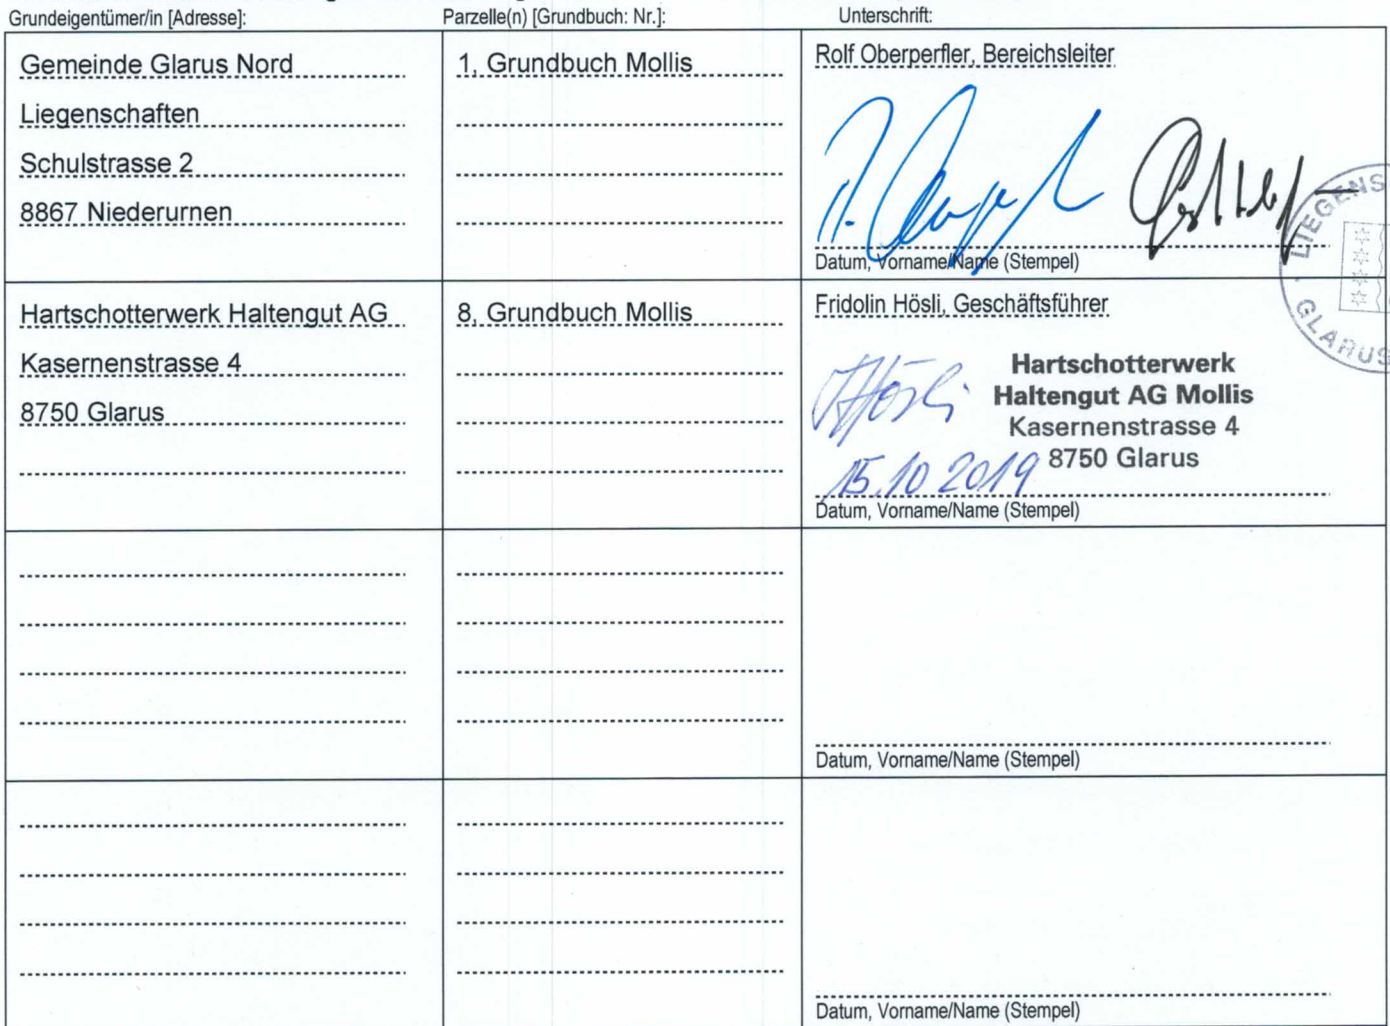 Grundeigentümer/in [Adresse]:
Parzelle(n) [Grundbuch: Nr.]:
Unterschrift:
Gemeinde Glarus Nord
Liegenschaften
Schulstrasse 2
8867 Niederurnen
1, Grundbuch Mollis
Rolf Oberperfler, Bereichsleiter
Datum, Vorname/Name (Stempel)
GLARUS
Hartschotterwerk Haltengut AG
Kasernenstrasse 4
8750 Glarus
8, Grundbuch Mollis
Fridolin Hösli, Geschäftsführer
Hösli
Hartschotterwerk
Haltengut AG Mollis
Kasernenstrasse 4
8750 Glarus
15.10 2019
Datum, Vorname/Name (Stempel)
Datum, Vorname/Name (Stempel)
Datum, Vorname/Name (Stempel)